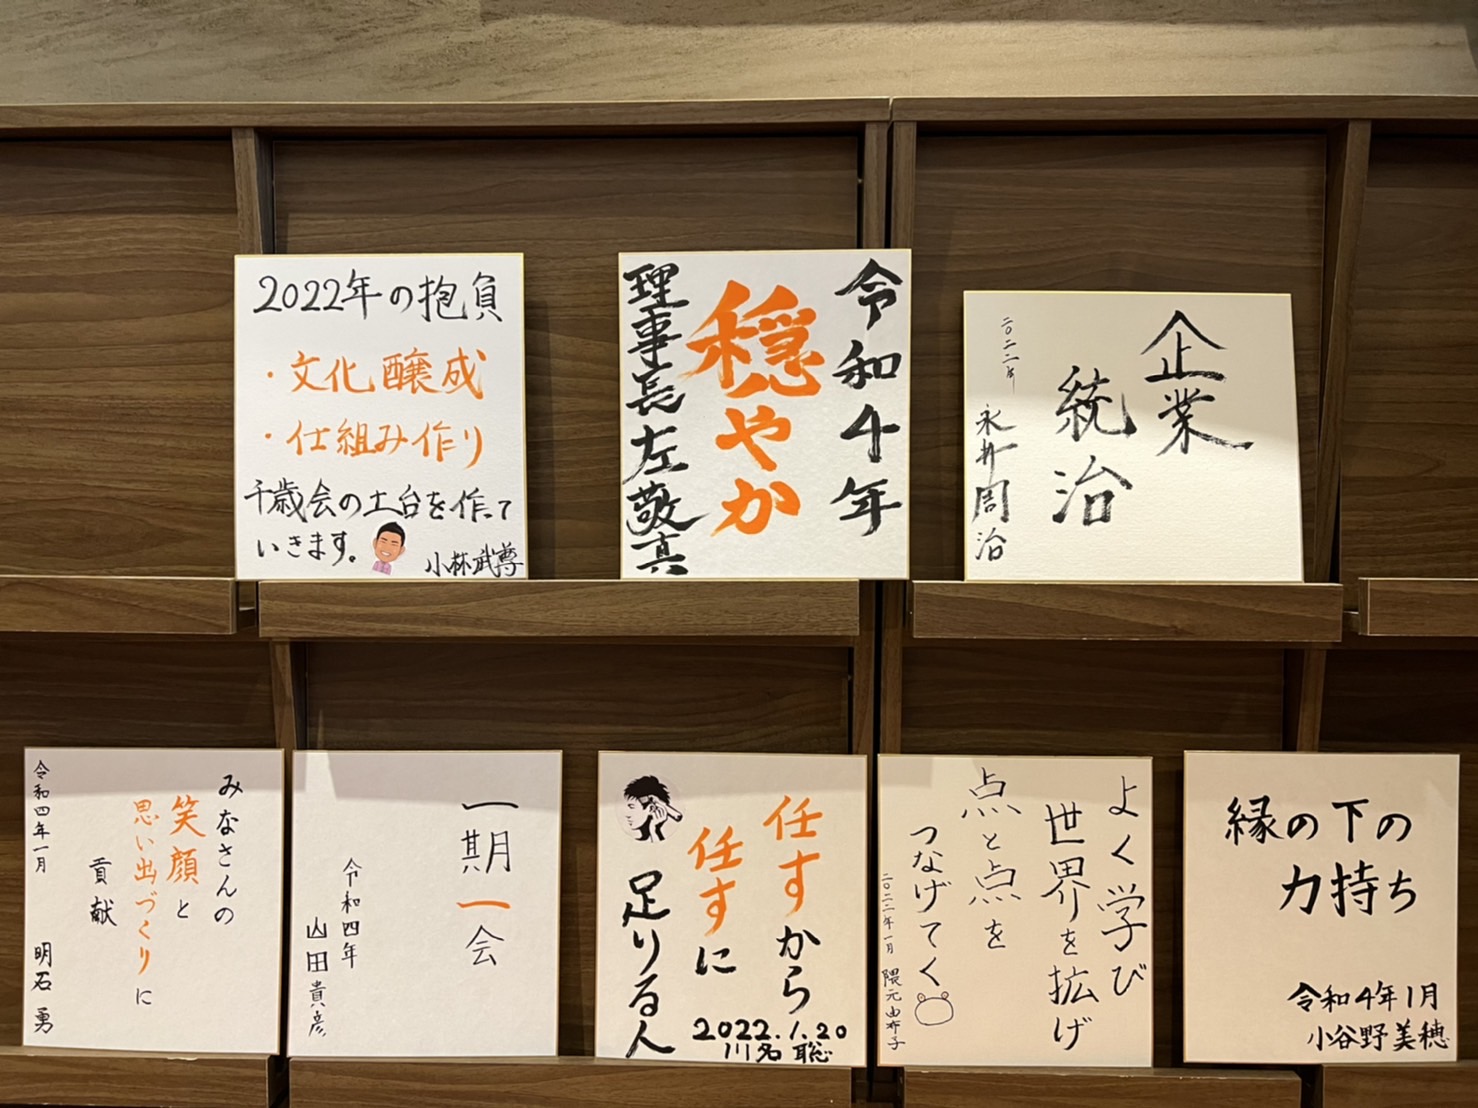 2022年の抱負
・文化醸成
・仕組み作り
千歳会の土台を作って
いきます。
小林武尊
令和4年
穏やか
理事長左敬真
企業
統治
二〇二二年
永井周治
みなさんの
笑顔と
思い出づくりに
貢献
令和四年一月
明石勇
一期一会
令和四年
山田貴彦
任すから
任すに
足りる人
2022.1.20
川名聡
よく学び
世界を拡げ
点と点を
つなげてく
二〇二二年一月
隈元由布子
縁の下の
力持ち
令和4年1月
小谷野美穂